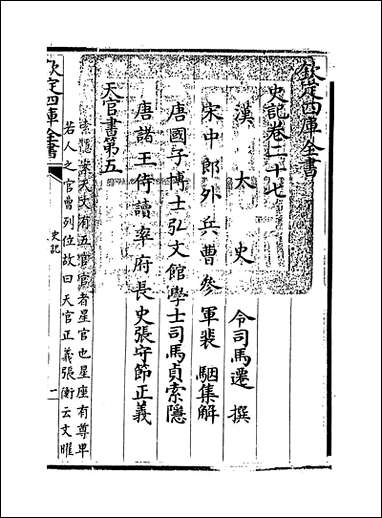 欽定四庫全書
史記卷二十七
漢太史令司馬遷撰
宋中郎外兵曹參軍裴駰集解
唐國子博士弘文館學士司馬貞索隱
唐諸王侍讀率府長史張守節正義
天官書第五
索隱案天文有五官官者星官也星座有尊卑
若人之官曹列位故曰天官正義張衡云文曜
欽定四庫全書
史記
一